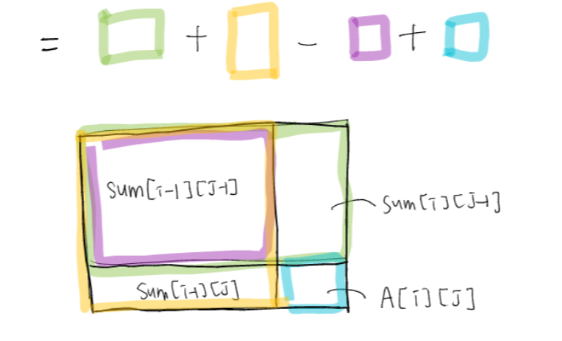 = + - +
sum[i-1][J-1]
sum[i][J-1]
sum[i-1][J]
A[i][J]